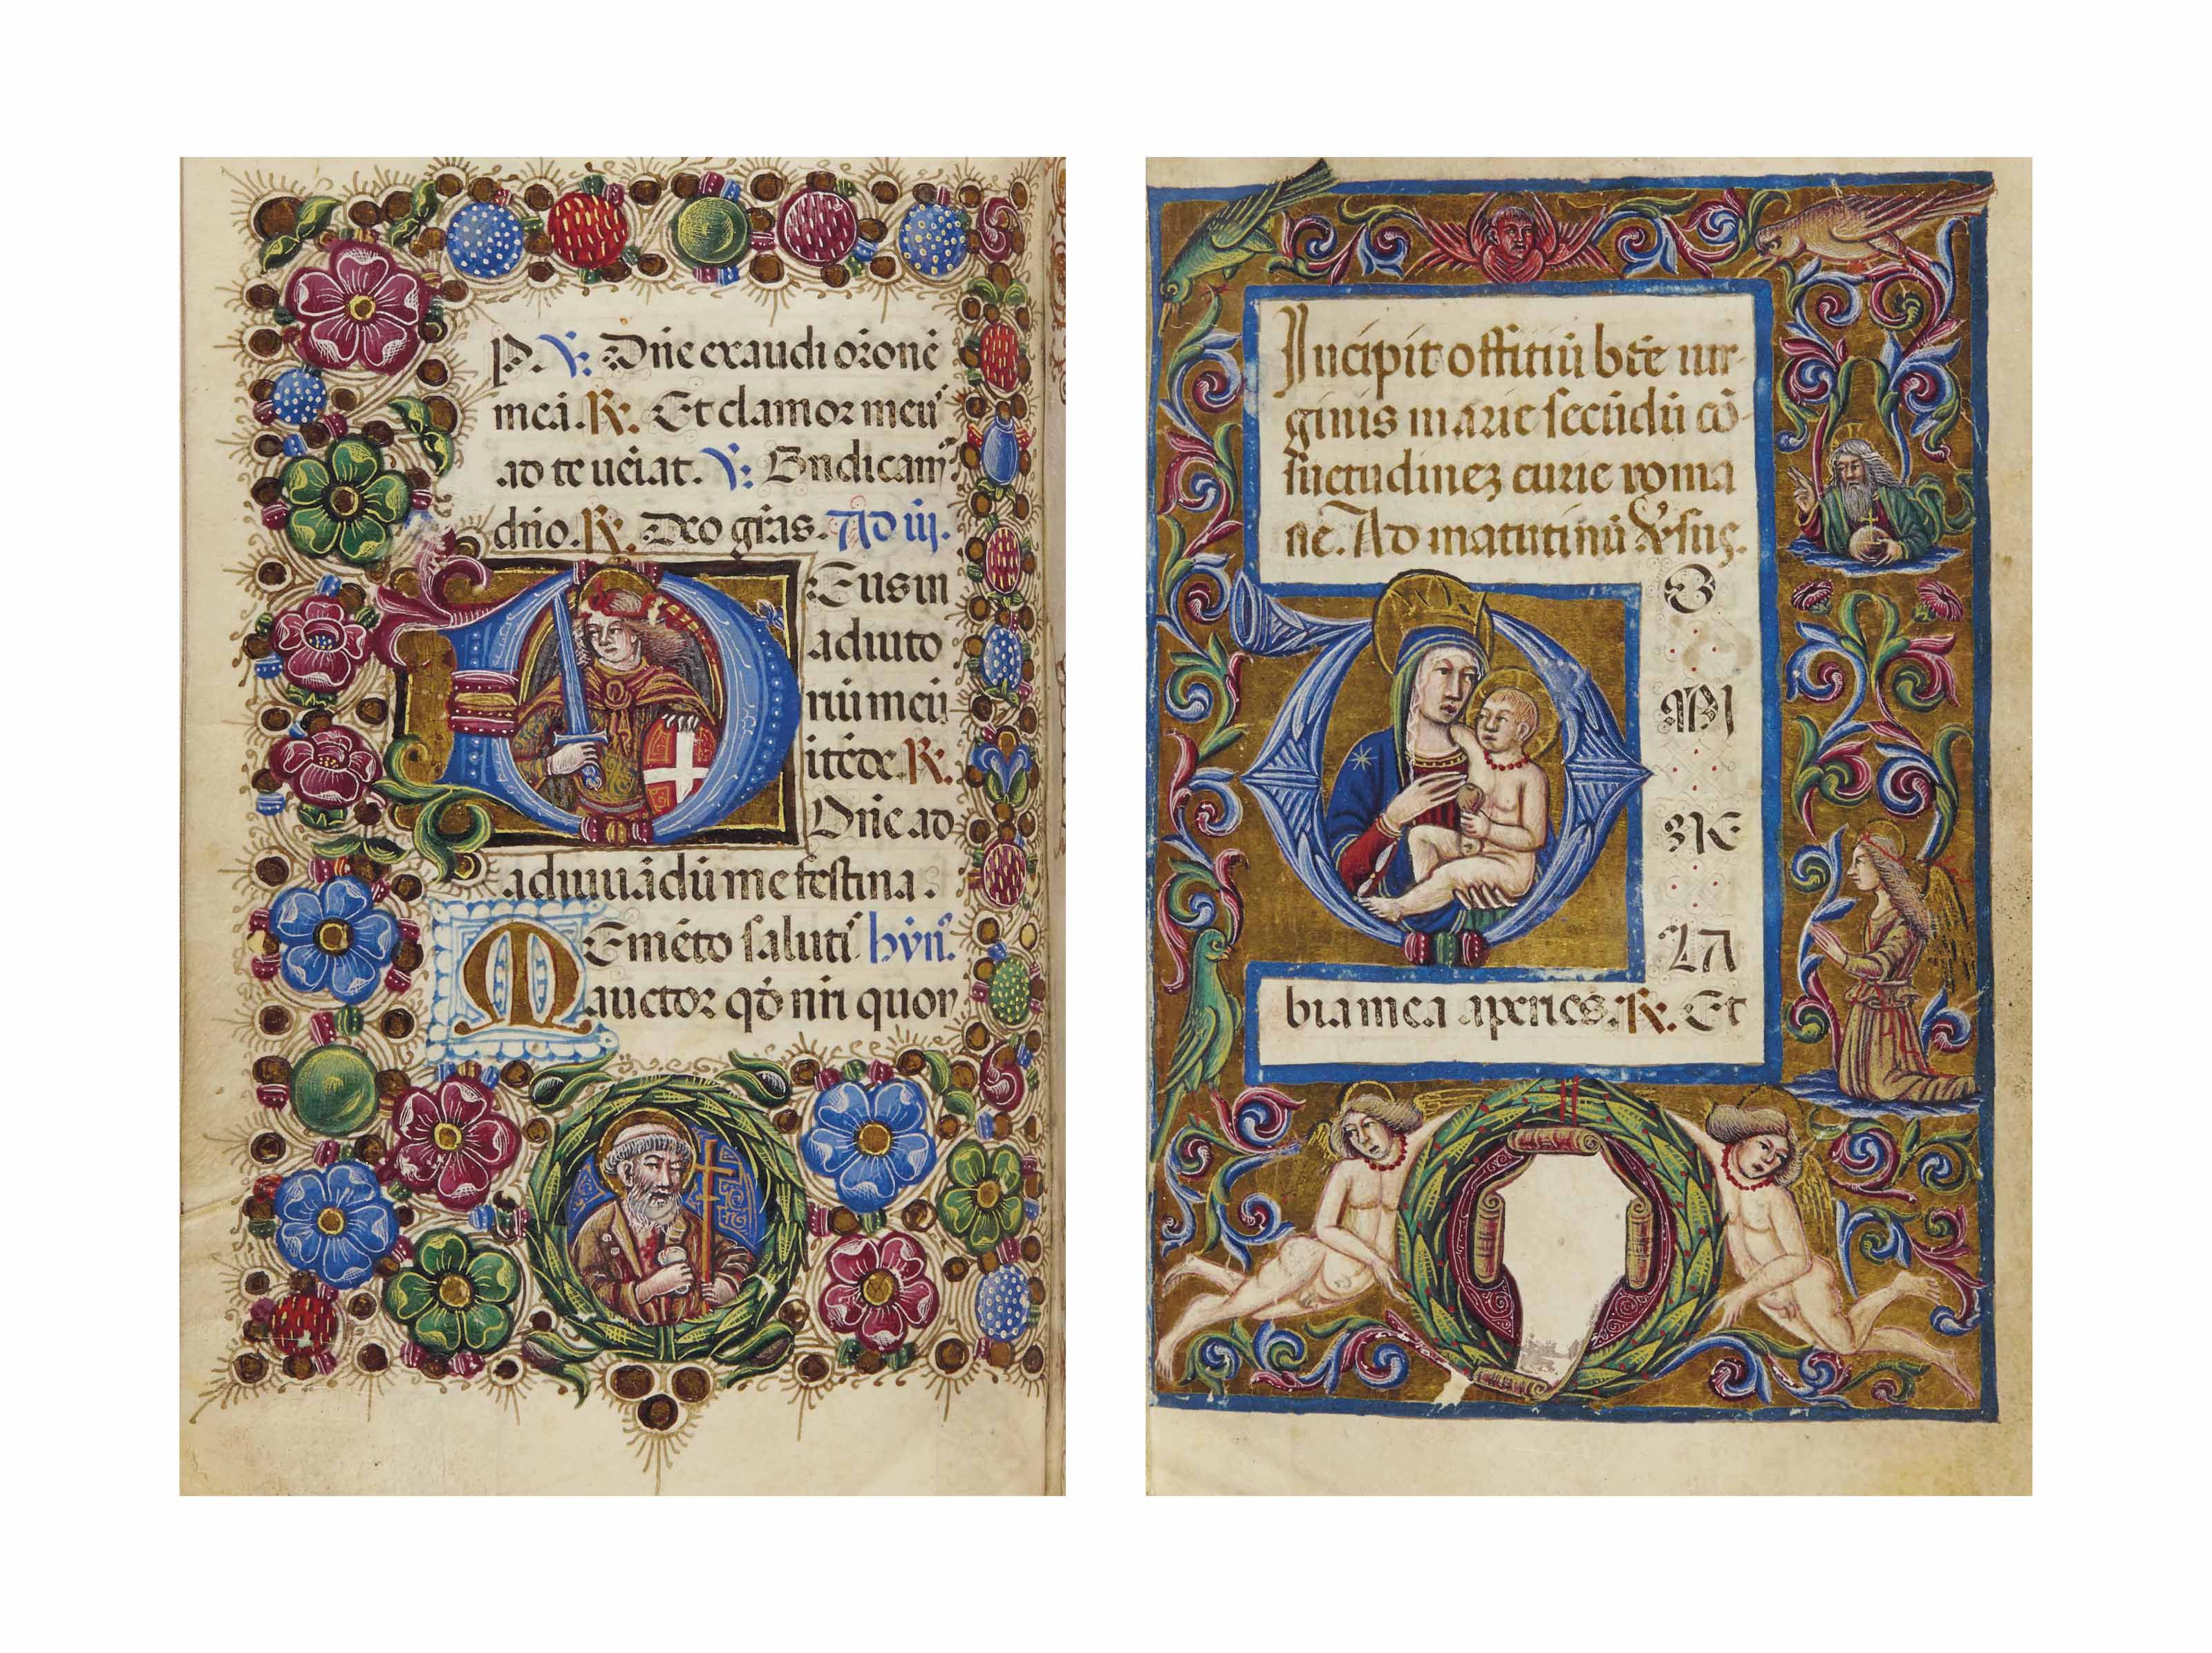 P. V: Dñe exaudi orõne
meã. R. Et clamor meu᷒
ad te ueĩat. V: Bñdicam᷒
dño. R. Deo grãs. Ad iij.
Deus in
adiuto
riũ meũ
itẽde. R.
Dñe ad
adiuuãdũ me festina.
MEmẽto saluti᷒ hyñ.
auctor qđ nr̃i quon
Incipit offitiũ bt̃e uir
ginis marie secũdũ cõ
suetudinez curie roma
ne. Ad matutinũ V̓sus.
DO
MI
NE
LA
bia mea aperies. R. Et